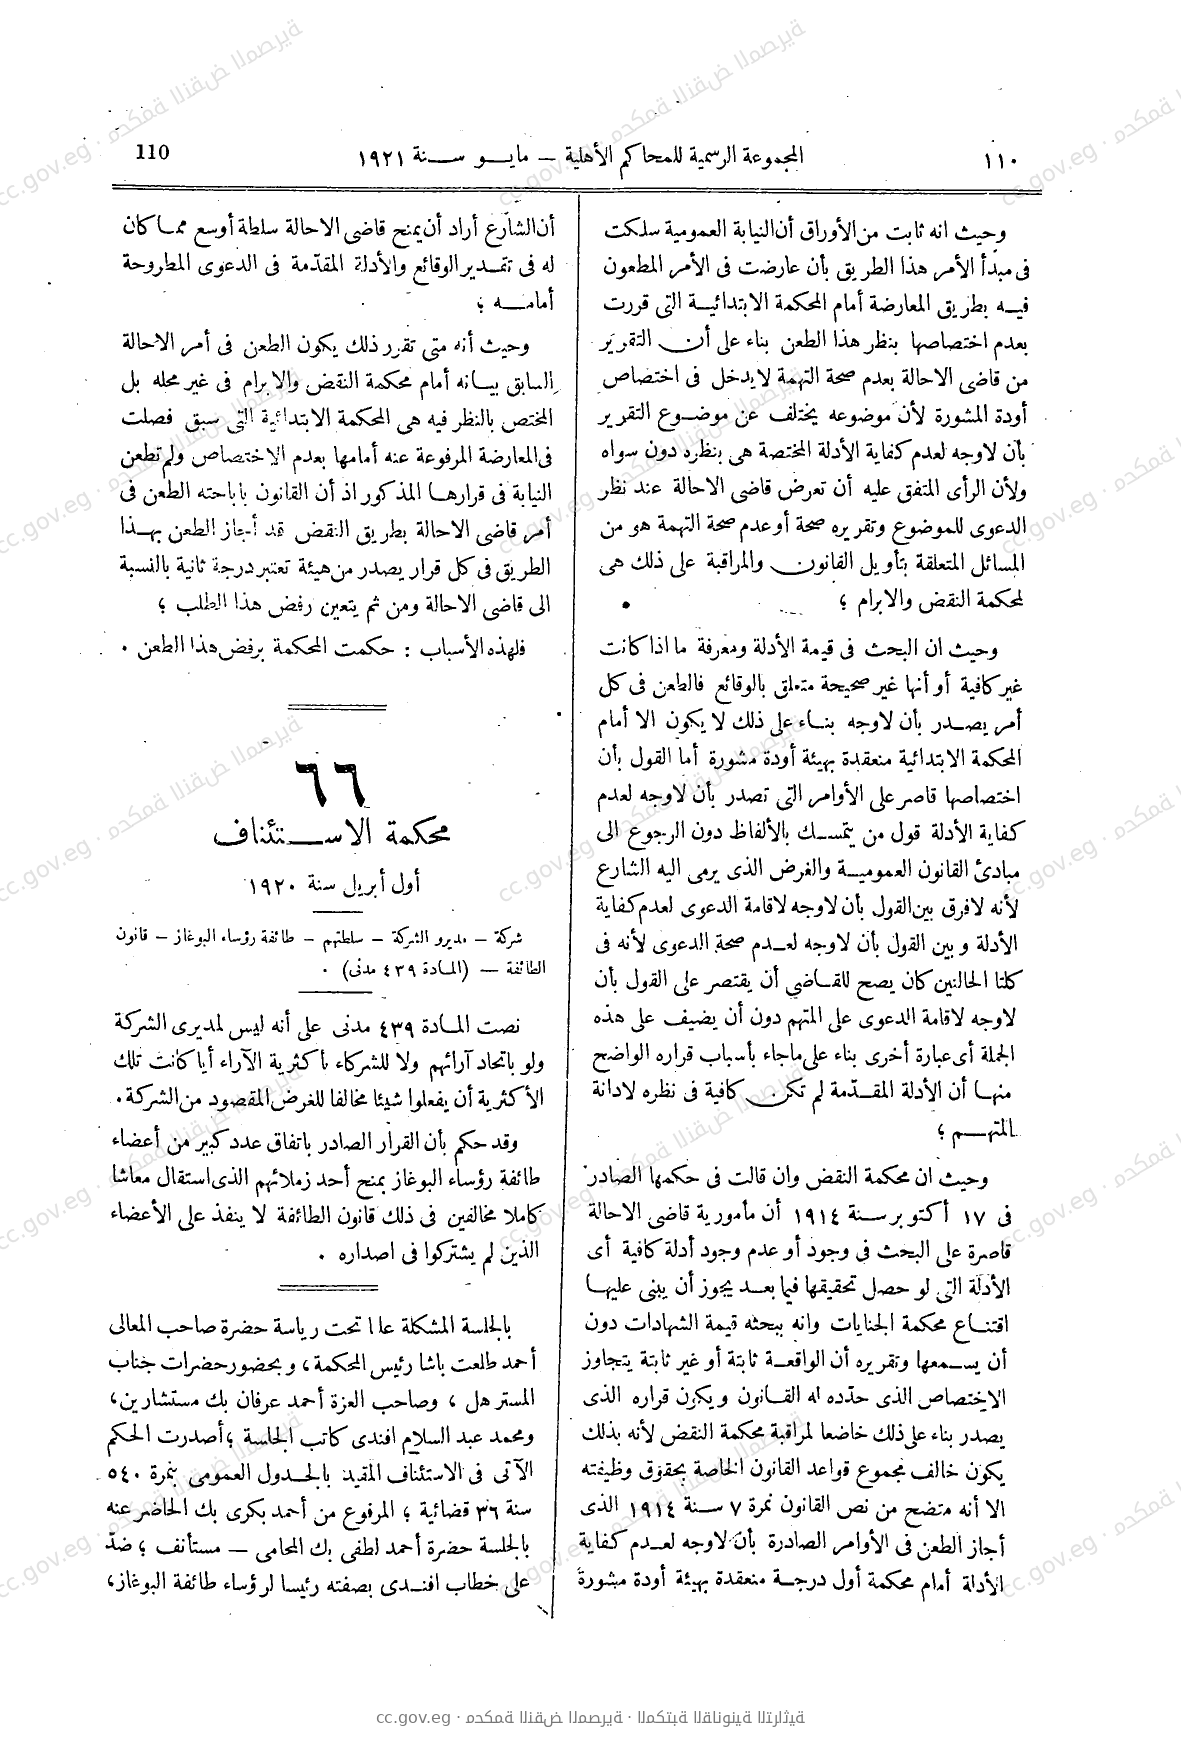 ١١٠
المجموعة الرسمية للمحاكم الأهلية — مايو سنة ١٩٢١
110
وحيث انه ثابت من الأوراق أن النيابة العمومية سلكت
فى مبدأ الأمر هذا الطريق بأن عارضت فى الأمر المطعون
فيه بطريق المعارضة أمام المحكمة الابتدائية التى قررت
بعدم اختصاصها بنظر هذا الطعن بناء على أن التقرير
من قاضى الاحالة بعدم صحة التهمة لا يدخل فى اختصاص
أودة المشورة لأن موضوعه يختلف عن موضوع التقرير
بأن لا وجه لعدم كفاية الأدلة المختصة هى بنظره دون سواه
ولأن الرأى المتفق عليه أن تعرض قاضى الاحالة عند نظر
الدعوى للموضوع وتقريره صحة أو عدم صحة التهمة هو من
المسائل المتعلقة بتأويل القانون والمراقبة على ذلك هى
لمحكمة النقض والابرام ؛
وحيث ان البحث فى قيمة الأدلة ومعرفة ما اذا كانت
غير كافية أو أنها غير صحيحة متعلق بالوقائع فالطعن فى كل
أمر يصدر بأن لا وجه بناء على ذلك لا يكون الا أمام
المحكمة الابتدائية منعقدة بهيئة أودة مشورة أما القول بأن
اختصاصها قاصر على الأوامر التى تصدر بأن لا وجه لعدم
كفاية الأدلة قول من يتمسك بالألفاظ دون الرجوع الى
مبادئ القانون العمومية والغرض الذى يرمى اليه الشارع
لأنه لا فرق بين القول بأن لا وجه لاقامة الدعوى لعدم كفاية
الأدلة وبين القول بأن لا وجه لعدم صحة الدعوى لأنه فى
كلتا الحالتين كان يصح للقاضى أن يقتصر على القول بأن
لا وجه لاقامة الدعوى على المتهم دون أن يضيف على هذه
الجملة أى عبارة أخرى بناء على ما جاء بأسباب قراره الواضح
منها أن الأدلة المقدّمة لم تكن كافية فى نظره لادانة
المتهم ؛
وحيث ان محكمة النقض وان قالت فى حكمها الصادر
فى ١٧ أكتوبر سنة ١٩١٤ أن مأمورية قاضى الاحالة
قاصرة على البحث فى وجود أو عدم وجود أدلة كافية أى
الأدلة التى لو حصل تحقيقها فيما بعد يجوز أن يبنى عليها
اقتناع محكمة الجنايات وانه ببحثه قيمة الشهادات دون
أن يسمعها وتقريره أن الواقعة ثابتة أو غير ثابتة يتجاوز
الاختصاص الذى حدّده له القانون ويكون قراره الذى
يصدر بناء على ذلك خاضعا لمراقبة محكمة النقض لأنه بذلك
يكون خالف مجموع قواعد القانون الخاصة بحقوق وظيفته
الا أنه متضح من نص القانون نمرة ٧ سنة ١٩١٤ الذى
أجاز الطعن فى الأوامر الصادرة بأن لا وجه لعدم كفاية
الأدلة أمام محكمة أول درجة منعقدة بهيئة أودة مشورة
أن الشارع أراد أن يمنح قاضى الاحالة سلطة أوسع مما كان
له فى تقدير الوقائع والأدلة المقدّمة فى الدعوى المطروحة
أمامه ؛
وحيث أنه متى تقرر ذلك يكون الطعن فى أمر الاحالة
السابق بيانه أمام محكمة النقض والابرام فى غير محله بل
المختص بالنظر فيه هى المحكمة الابتدائية التى سبق فصلت
فى المعارضة المرفوعة عنه أمامها بعدم الاختصاص ولم تطعن
النيابة فى قرارها المذكور اذ أن القانون باباحته الطعن فى
أمر قاضى الاحالة بطريق النقض قد أجاز الطعن بهذا
الطريق فى كل قرار يصدر من هيئة تعتبر درجة ثانية بالنسبة
الى قاضى الاحالة ومن ثم يتعين رفض هذا الطلب ؛
فلهذه الأسباب : حكمت المحكمة برفض هذا الطعن .
٦٦
محكمة الاستئناف
أول أبريل سنة ١٩٢٠
شركة — مديرو الشركة — سلطتهم — طائفة رؤساء البوغاز — قانون
الطائفة — (المادة ٤٣٩ مدنى) .
نصت المادة ٤٣٩ مدنى على أنه ليس لمديرى الشركة
ولو باتحاد آرائهم ولا للشركاء بأكثرية الآراء أيا كانت تلك
الأكثرية أن يفعلوا شيئا مخالفا للغرض المقصود من الشركة .
وقد حكم بأن القرار الصادر باتفاق عدد كبير من أعضاء
طائفة رؤساء البوغاز بمنح أحد زملائهم الذى استقال معاشا
كاملا مخالفين فى ذلك قانون الطائفة لا ينفذ على الأعضاء
الذين لم يشتركوا فى اصداره .
بالجلسة المشكلة علنا تحت رياسة حضرة صاحب المعالى
أحمد طلعت باشا رئيس المحكمة ، وبحضور حضرات جناب
المستر هل ، وصاحب العزة أحمد عرفان بك مستشارين ،
ومحمد عبد السلام افندى كاتب الجلسة ؛ أصدرت الحكم
الآتى فى الاستئناف المقيد بالجدول العمومى بنمرة ٥٤٠
سنة ٣٦ قضائية ؛ المرفوع من أحمد بكرى بك الحاضر عنه
بالجلسة حضرة أحمد لطفى بك المحامى — مستأنف ؛ ضدّ
على خطاب افندى بصفته رئيسا لرؤساء طائفة البوغاز ،
cc.gov.eg · محكمة النقض المصرية · المكتبة القانونية التراثية